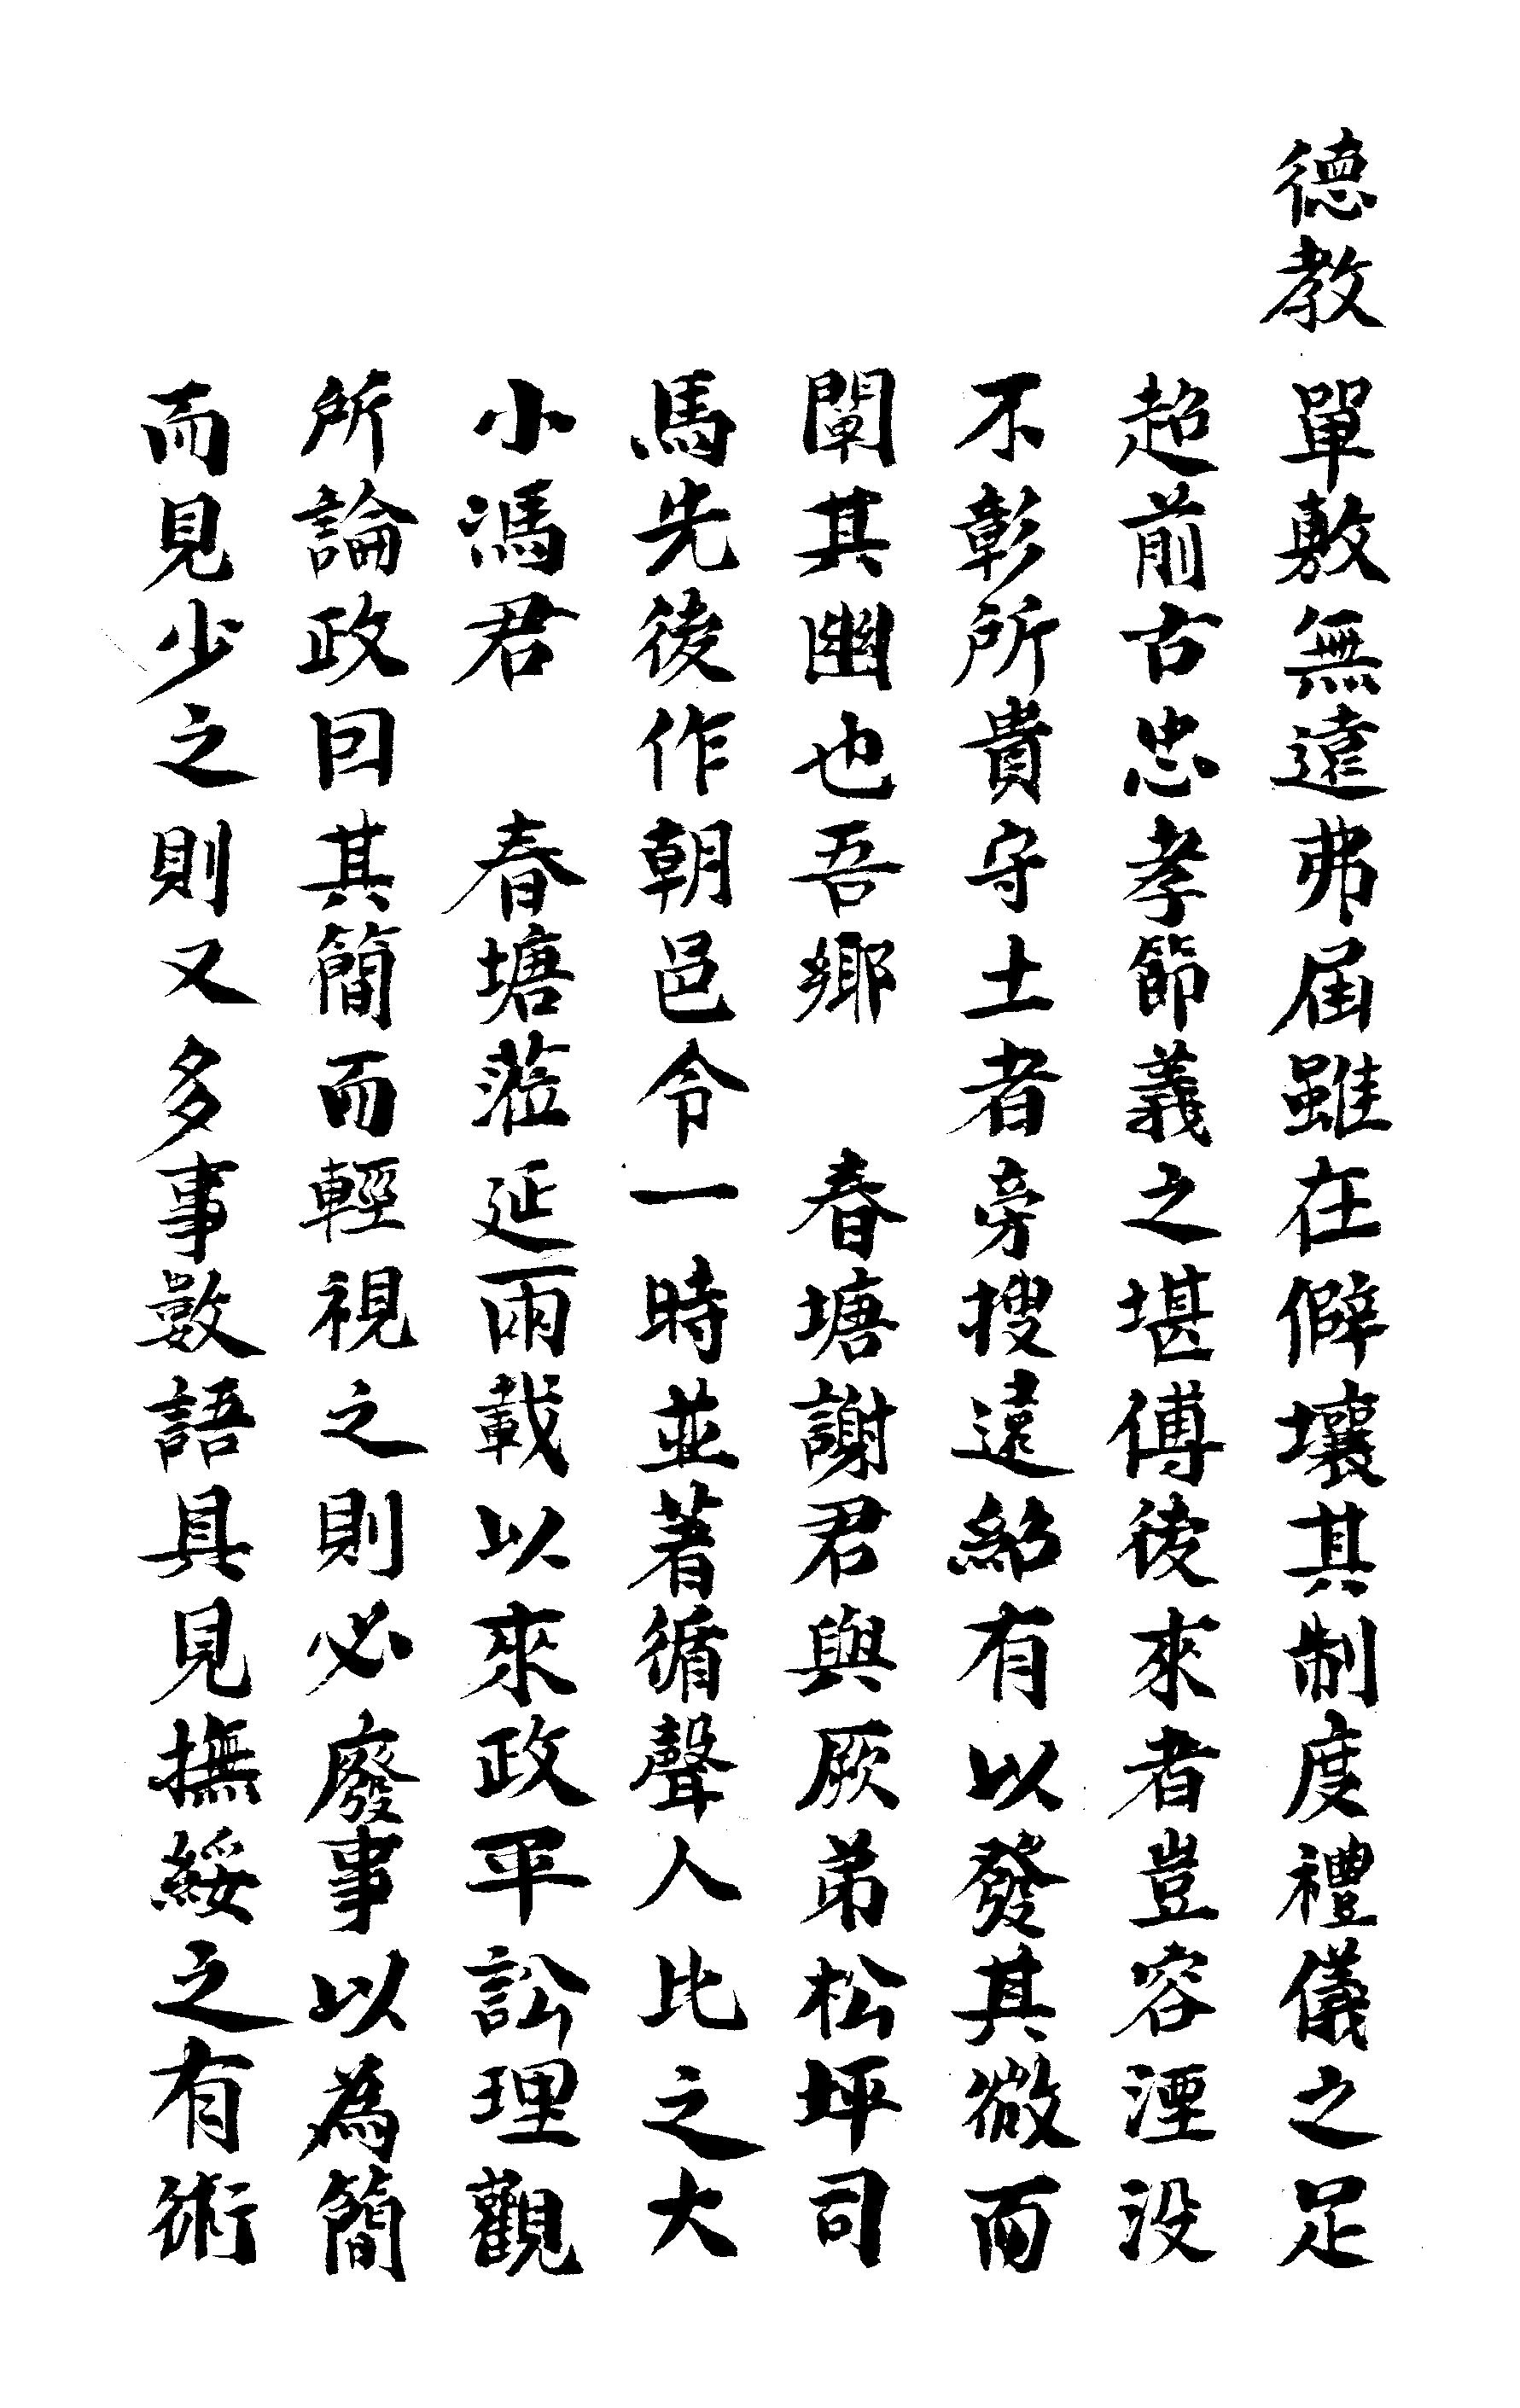 德教單敷無遠弗屆雖在僻壤其制度禮儀之足
超前古忠孝節義之堪傳後來者豈容湮没
不彰所貴守土者旁搜遠紹有以發其微而
闡其幽也吾鄉 春塘謝君與厥弟松坪司
馬先後作朝邑令一時並著循聲人比之大
小馮君 春塘蒞延兩載以來政平訟理觀
所論政曰其簡而輕視之則必廢事以為簡
而見少之則又多事數語具見撫綏之有術